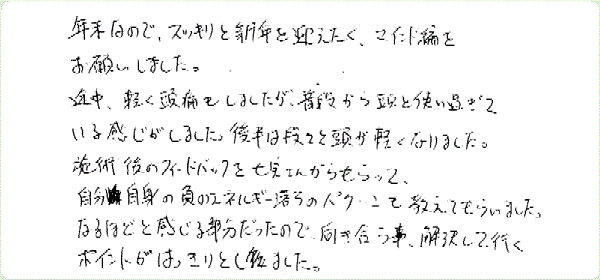 年末なので、スッキリと新年を迎えたく、マインド編を
お願いしました。
途中、軽く頭痛もしましたが、普段から頭を使い過ぎて
いる感じがしました。後半は段々と頭が軽くなりました。
施術後のフィードバックを せんからもらって、
自分自身の負のエネルギー落ちのパターンこも教えてもらいました。
なるほどと感じる部分だったので、向き合う事、解決して行く
ポイントがはっきりとし ました。